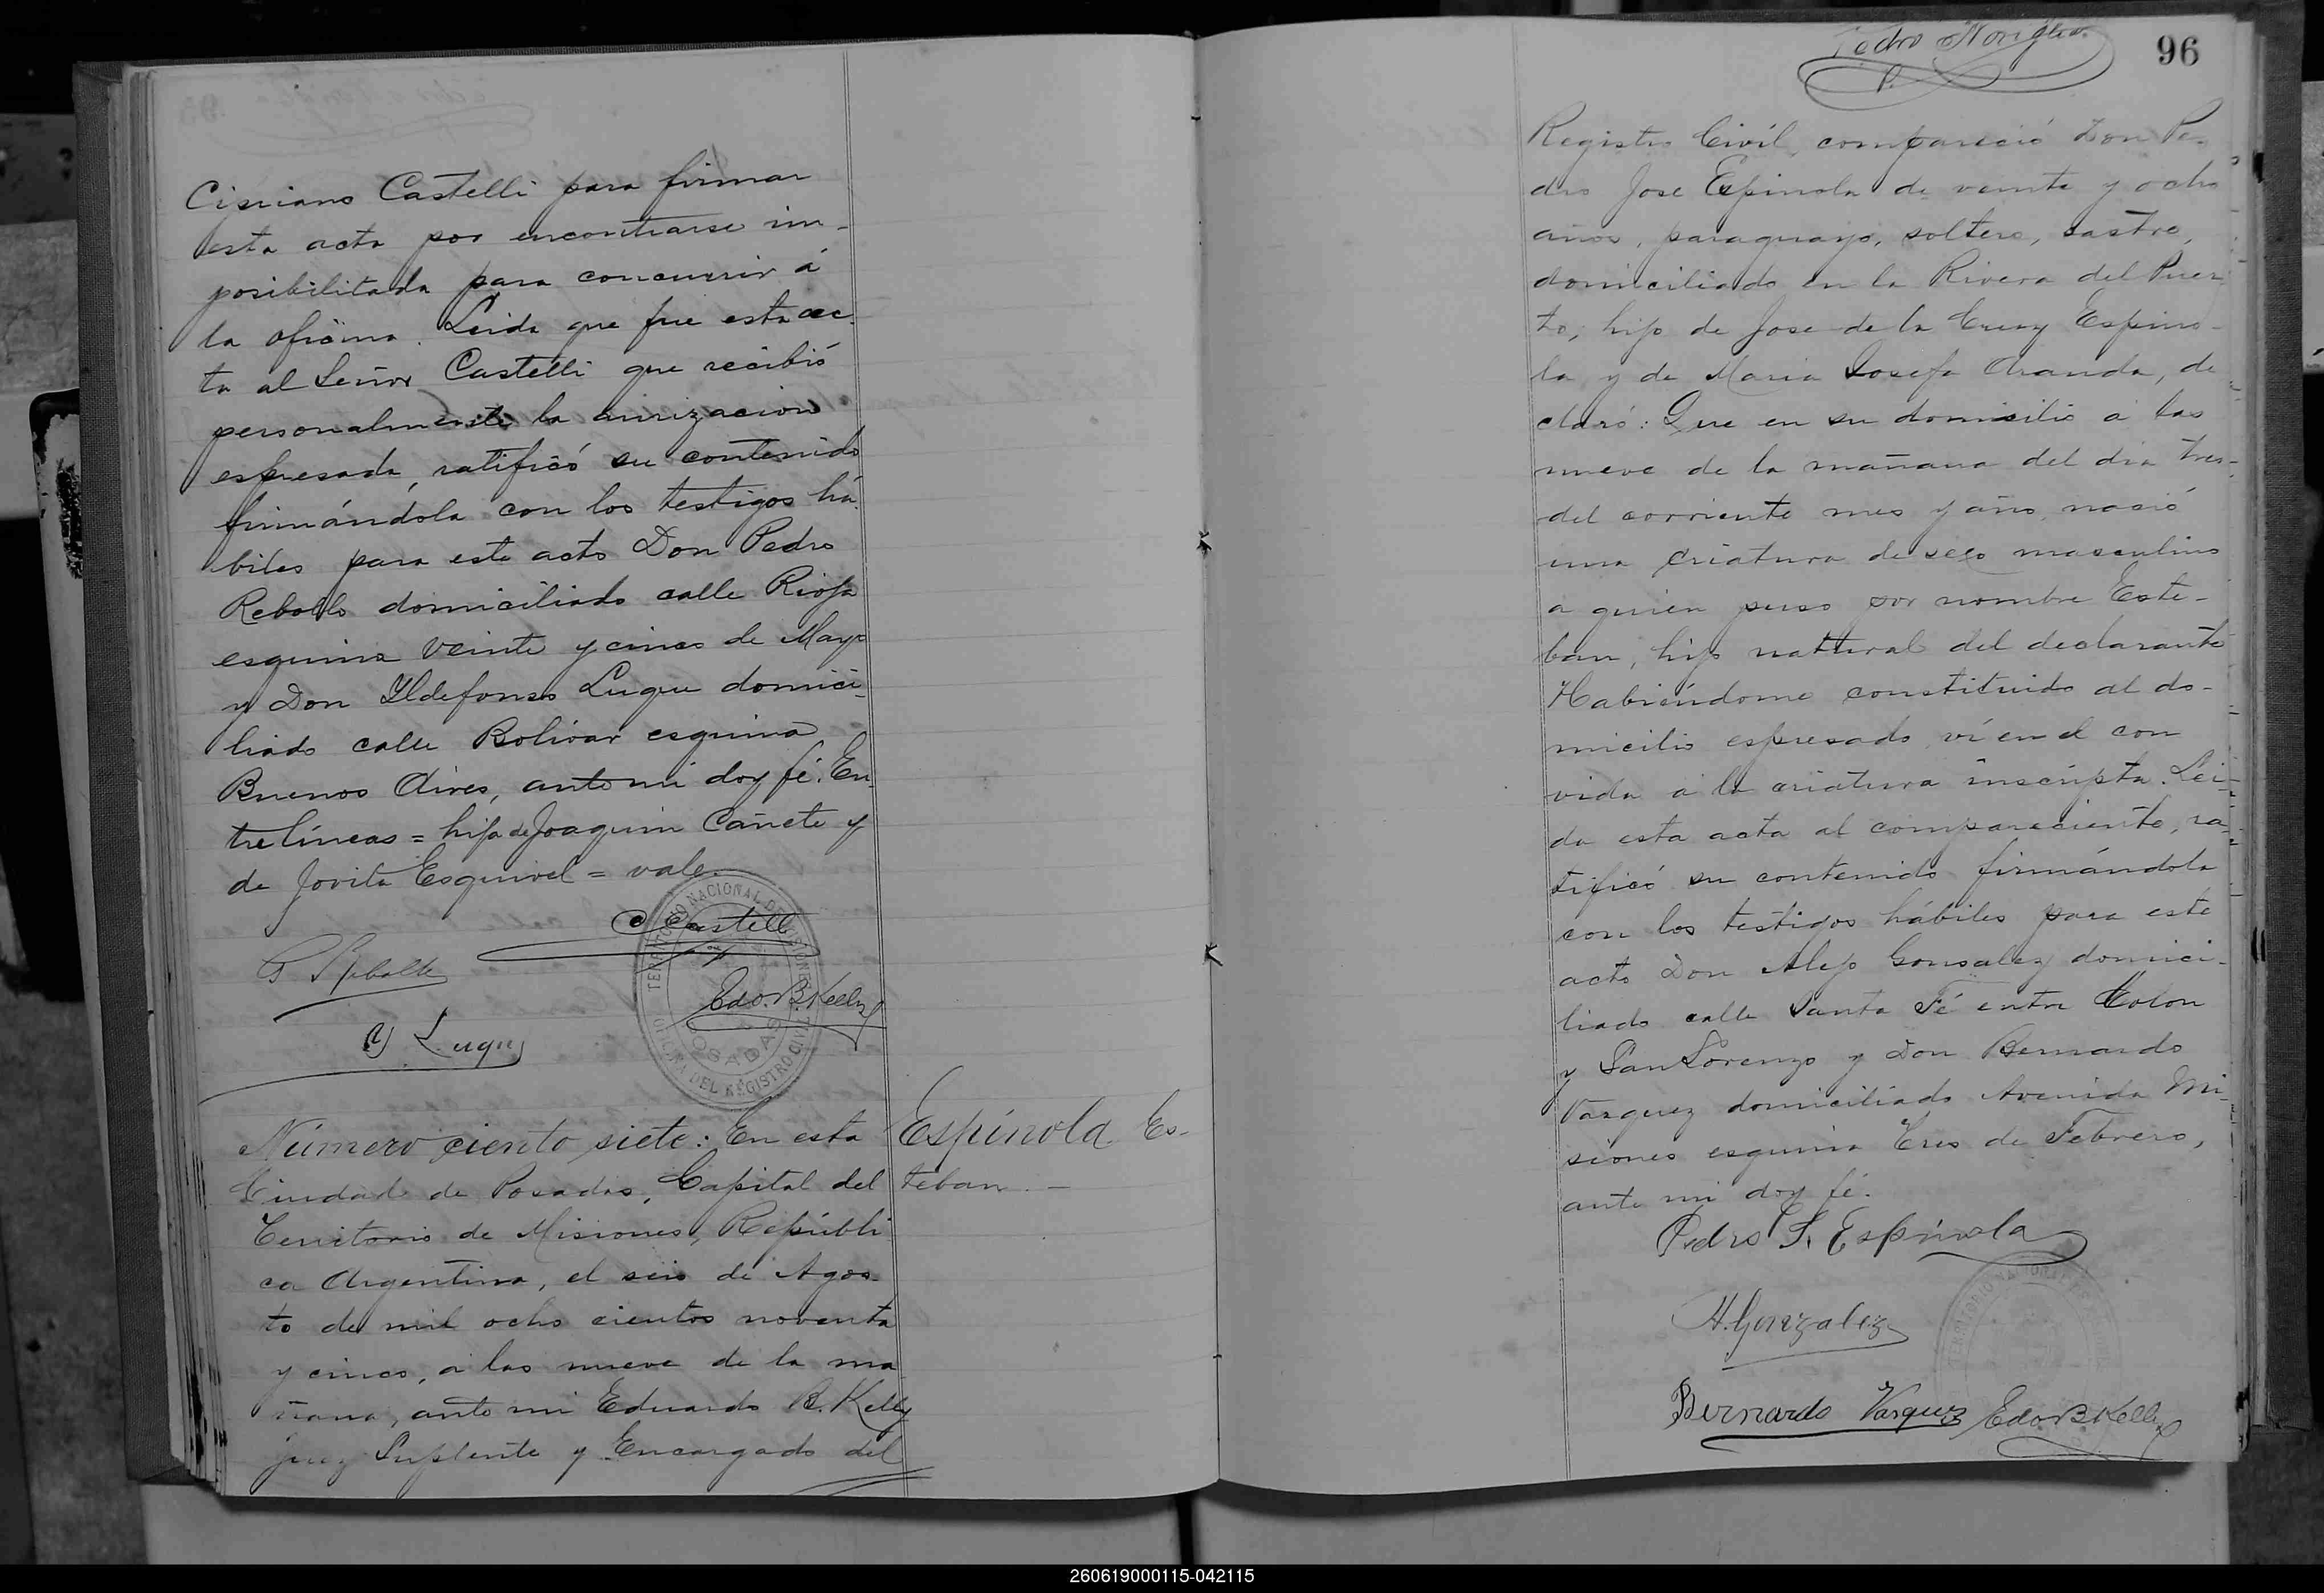 Cipriano Castelli para firmar
esta acta por encontrarse im-
posibilitada para concurrir á
la oficina. Leida que fue esta ac-
ta al Señor Castelli que recibió
personalmente la
espresada, ratificó su contenido
firmándola con los testigos há-
biles para este acto Don Pedro
Rebollo domiciliado calle Rioja
esquina veinte y cinco de Mayo
y Don Yldefonso Luque domici-
liado calle Bolivar esquina
Buenos Aires, ante mi doy fé. En-
tre líneas = hija de Joaquin Cañete y
de Jovita Esquivel = vale.
C Castelli
P. Rebollo
Edo. B. Kelly
Y Luque
TERRITORIO NACIONAL DE MISIONES
OFICINA DEL REGISTRO CIVIL
POSADAS
Número ciento siete: En esta
Ciudad de Posadas, Capital del
Territorio de Misiones, Repúbli
ca Argentina, el seis de Agos-
to de mil ocho cientos noventa
y cinco, a las nueve de la ma
ñana, ante mi Eduardo B. Kelly
Juez Suplente y Encargado del
Espínola Es-
teban. -
Pedro
96
Registro Civil, compareció Don Pe-
dro Jose Espinola de veinte y ocho
años, paraguayo, soltero, sastre,
domiciliado en la Rivera del Puer
to, hijo de Jose de la Cruz Espino-
la y de Maria Josefa Aranda, de
claró: Que en su domisilio a las
nueve de la mañana del dia tres
del corriente mes y año, nació
una criatura de seço masculino
a quien puso por nombre Este-
ban, hijo natural del declarante
Habiéndome constituido al do-
micilio espresado ví en el con
vida a la criatura inscripta. Lei-
da esta acta al compareciente, ra-
tificó su contenido firmándola
con los testigos hábiles para este
acto Don Alejo Gonsalez domici-
liado calle Santa Fé entre Colon
y San Lorenzo y Don Bernardo
Vasquez domiciliado Avenida Mi-
siones esquina Tres de Febrero,
ante mi doy fé.
Pedro J. Espínola
A. Gonzalez
Bernardo Vasquez
Edo B Kelly
260619000115-042115